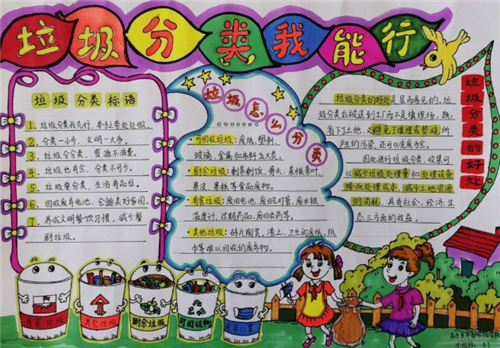 垃圾分类我能行
垃圾分类标语
1、垃圾分类我先行,举手之劳处处做。
2、分类一小步,文明一大步。
3、垃圾分类,资源不浪费。
4、垃圾也有家,分类不可少。
5、垃圾要分类,生活有品位。
6、回收废弃电池,合肥美好家园。
7、养成文明餐饮习惯,减少餐
厨垃圾。
垃圾怎么分类
可回收垃圾:废纸、塑料、
玻璃、金属和布料五大类。
厨余垃圾:剩菜剩饭、骨头、菜根菜叶、
果皮、果核等食品废物。
有害垃圾:废旧电池、废日光灯管、废水银
温度计、过期药品、废旧家电等。
其他垃圾:砖瓦陶瓷、渣土、卫生间废纸、纸
巾等难以回收的废弃物。
垃圾分类的好处
垃圾分类的好处是显而易见的,垃
圾分类后被送到工厂而不是填埋场,既
省下了土地,又避免了填埋或焚烧所
产生的污染,还可以变废为宝。
因此进行垃圾分类,收集可
以减少垃圾处理量和处理设备
降低处理成本,减少土地资源
的消耗,具有社会、经济、生
态三方面的效益。
其它垃圾
厨余垃圾
可回收物